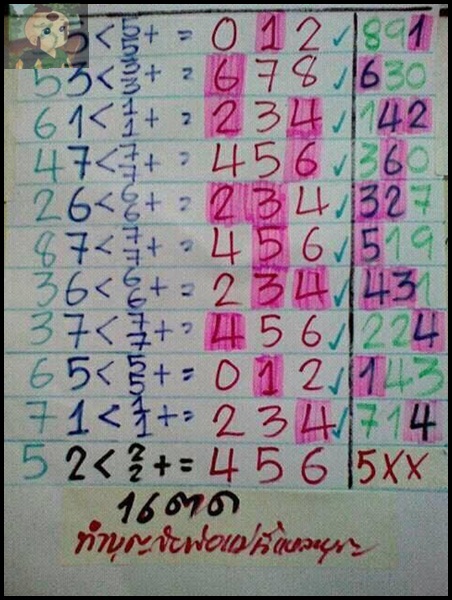 5 < 5/5 + = 0 1 2 ✓ 891
5 3 < 3/3 + = 6 7 8 ✓ 630
6 1 < 1/1 + = 2 3 4 ✓ 142
4 7 < 7/7 + = 4 5 6 ✓ 360
2 6 < 6/6 + = 2 3 4 ✓ 327
8 7 < 7/7 + = 4 5 6 ✓ 519
3 6 < 6/6 + = 2 3 4 ✓ 431
3 7 < 7/7 + = 4 5 6 ✓ 224
6 5 < 5/5 + = 0 1 2 ✓ 143
7 1 < 1/1 + = 2 3 4 ✓ 714
5 2 < 2/2 + = 4 5 6 5XX
16